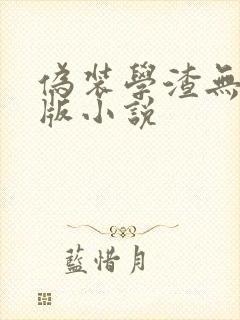 偽裝學渣無
版小說
藍惜月